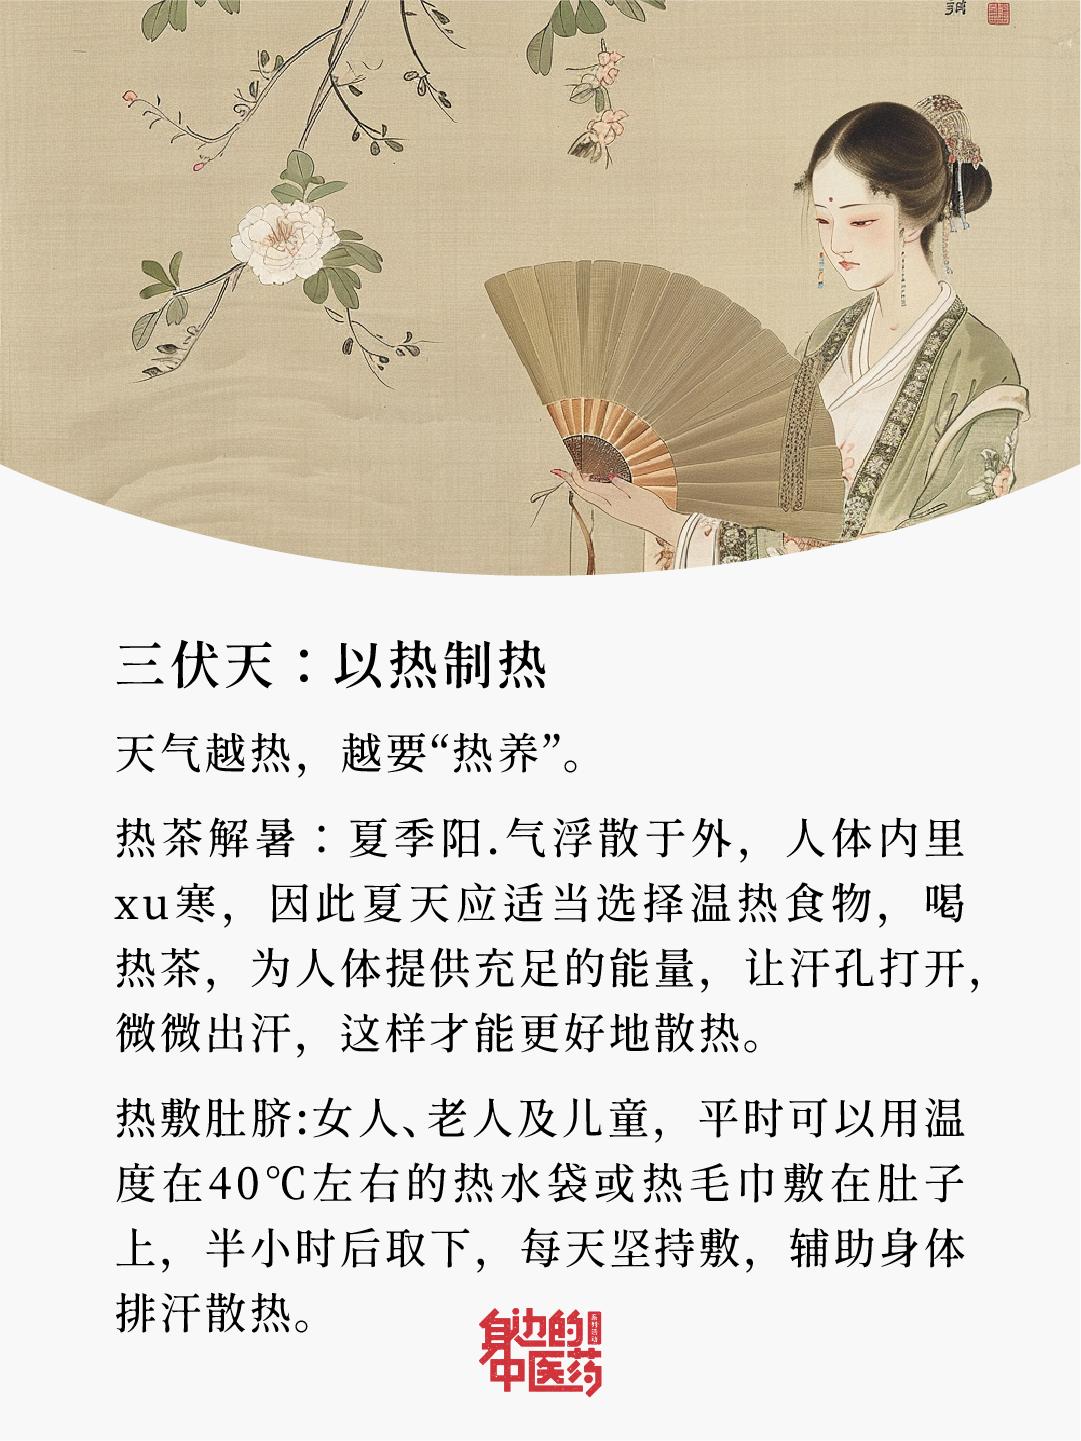 三伏天：以热制热
天气越热，越要“热养”。
热茶解暑：夏季阳.气浮散于外，人体内里
xu寒，因此夏天应适当选择温热食物，喝
热茶，为人体提供充足的能量，让汗孔打开，
微微出汗，这样才能更好地散热。
热敷肚脐:女人、老人及儿童，平时可以用温
度在40℃左右的热水袋或热毛巾敷在肚子
上，半小时后取下，每天坚持敷，辅助身体
排汗散热。
身边的
系列活动
中医药